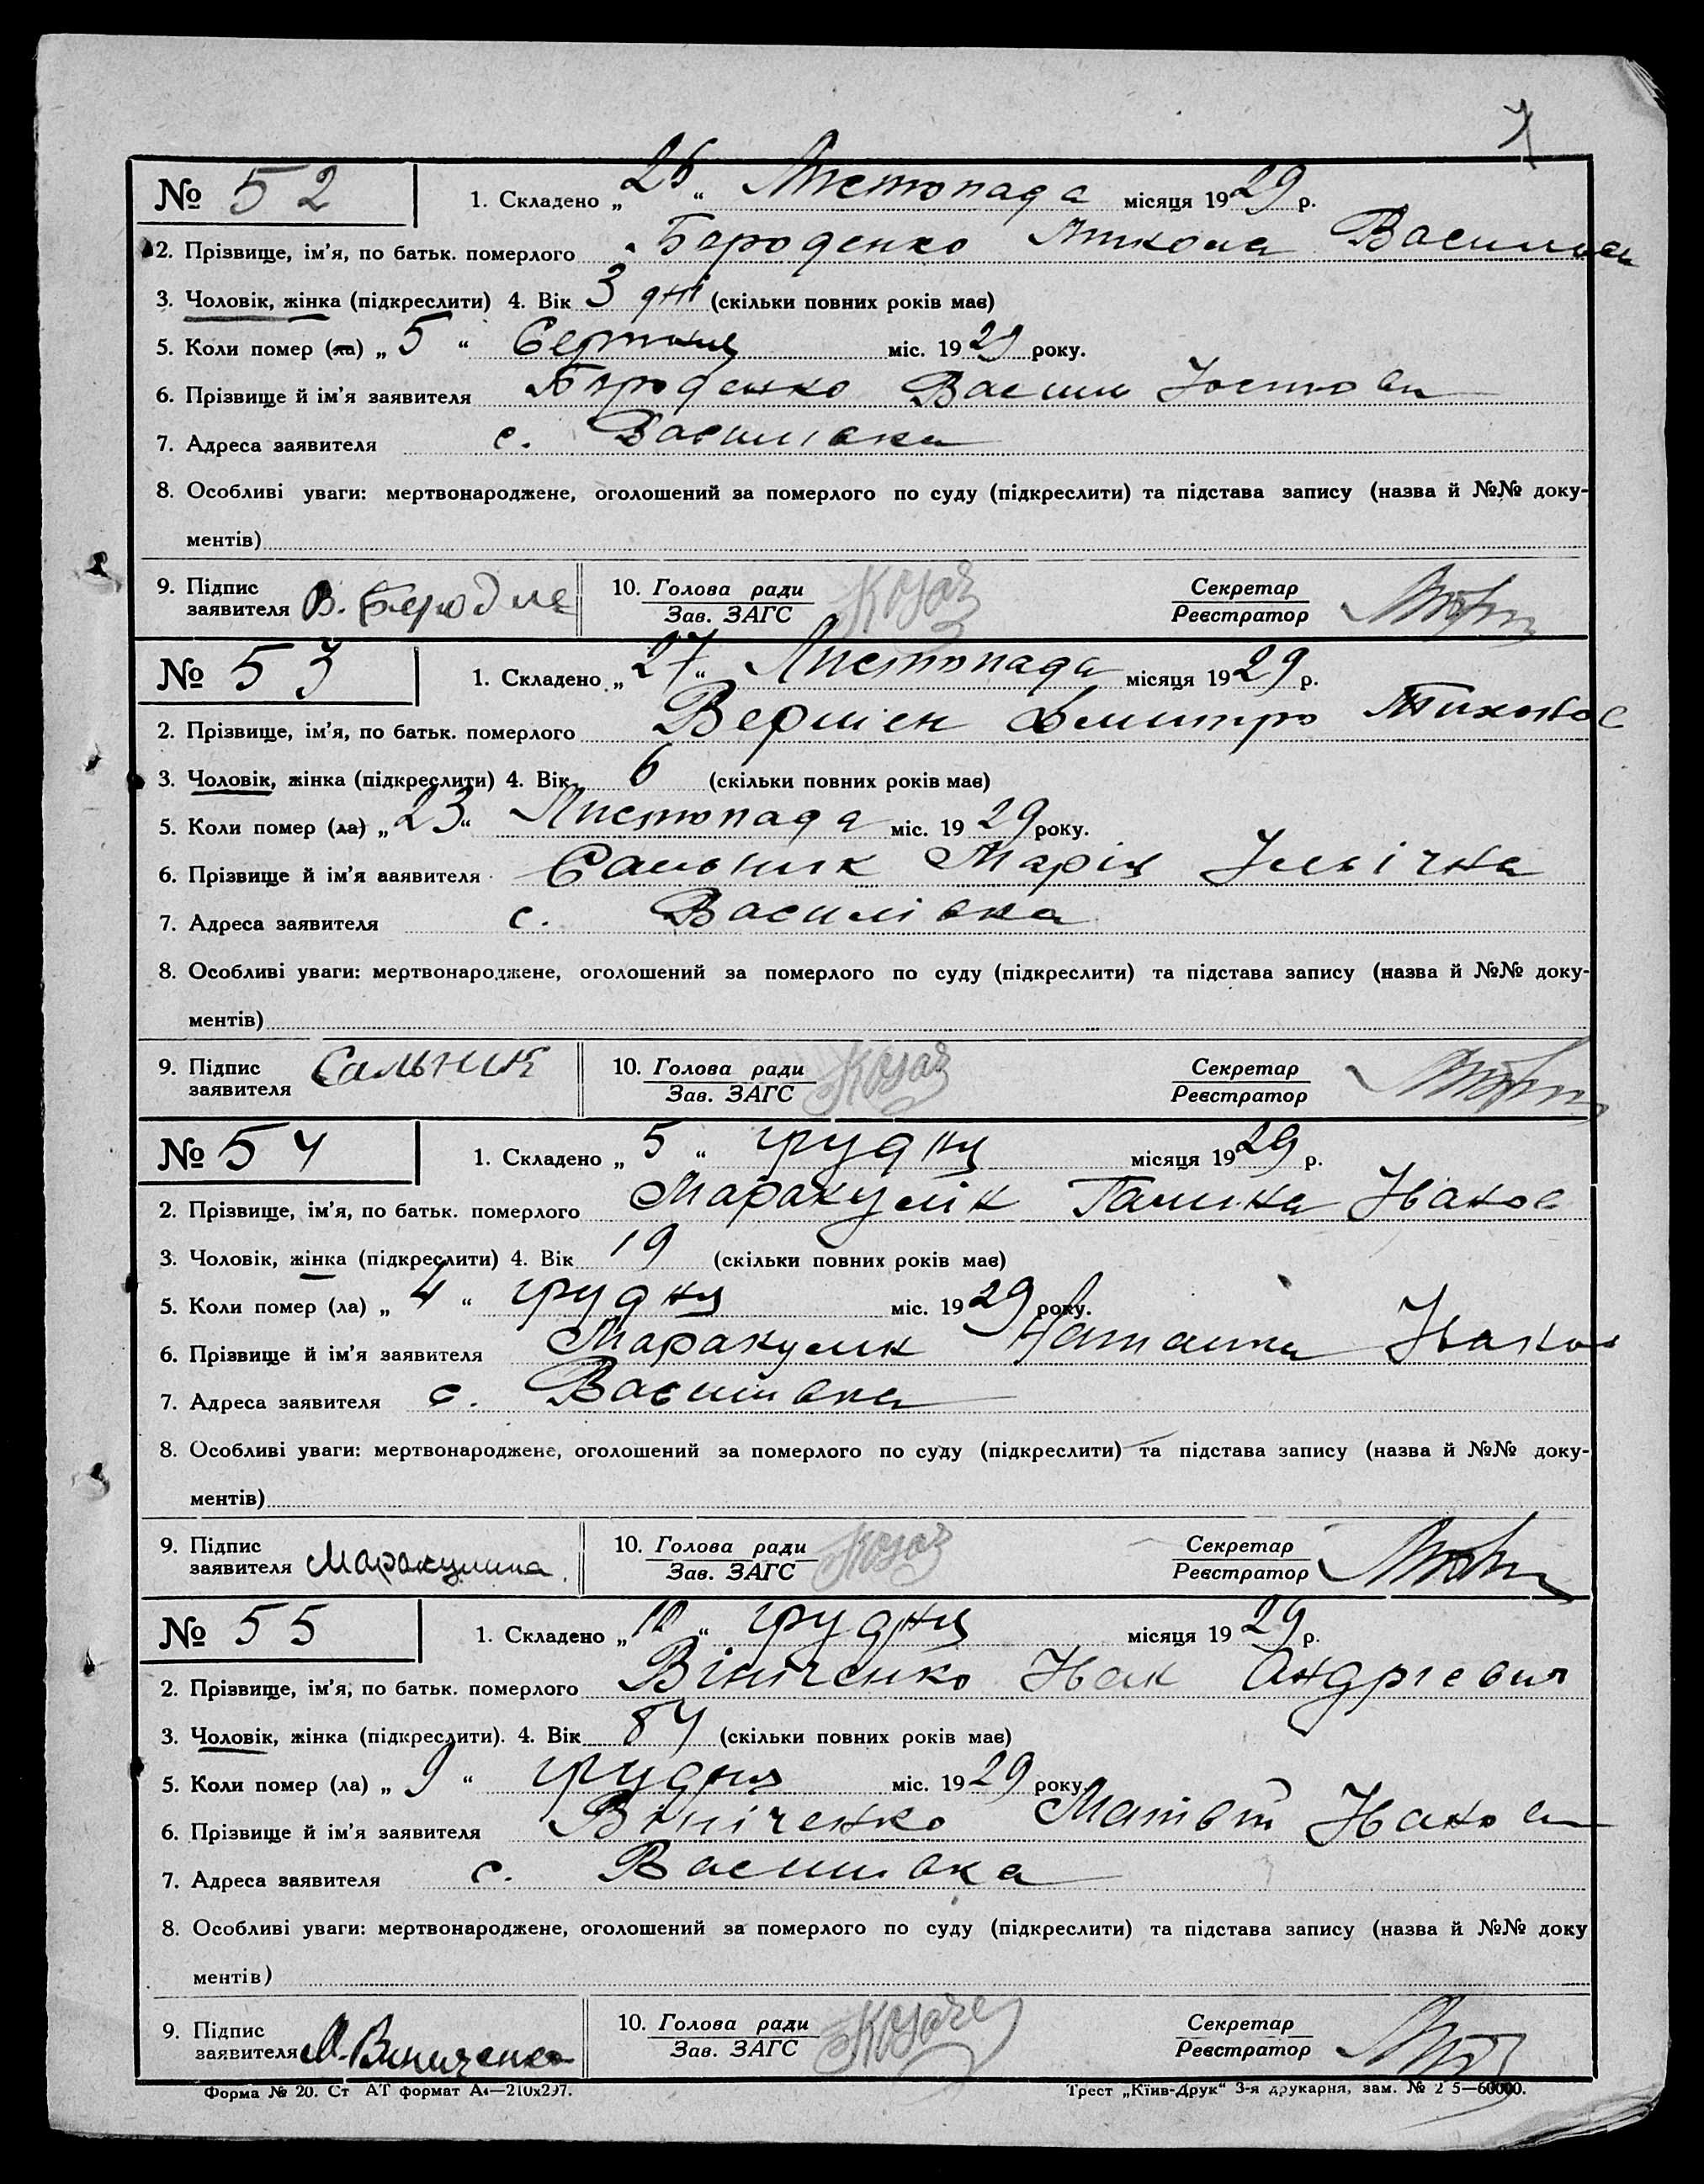 7
№ 52 1. Складено „26“ Листопада місяця 1929 р.
2. Прізвище, ім'я, по батьк. померлого Бороденко Микола Васильов
3. Чоловік, жінка (підкреслити) 4. Вік 3 дні (скільки повних років має)
5. Коли помер (ла) „5“ Серпня міс. 1929 року.
6. Прізвище й ім'я заявителя Бороденко Василь
7. Адреса заявителя с. Василівка
8. Особливі уваги: мертвонароджене, оголошений за померлого по суду (підкреслити) та підстава запису (назва й №№ доку-
ментів)
9. Підпис заявителя В. 10. Голова ради Зав. ЗАГС Козач Секретар Реєстратор
№ 53 1. Складено „27“ Листопада місяця 1929 р.
2. Прізвище, ім'я, по батьк. померлого Дмитро Тихонов
3. Чоловік, жінка (підкреслити) 4. Вік 6 (скільки повних років має)
5. Коли помер (ла) „23“ Листопада міс. 1929 року.
6. Прізвище й ім'я заявителя Сальник Марія Ільічна
7. Адреса заявителя с. Василівка
8. Особливі уваги: мертвонароджене, оголошений за померлого по суду (підкреслити) та підстава запису (назва й №№ доку-
ментів)
9. Підпис заявителя Сальник 10. Голова ради Зав. ЗАГС Козач Секретар Реєстратор
№ 54 1. Складено „5“ грудня місяця 1929 р.
2. Прізвище, ім'я, по батьк. померлого Маракулік Галина Іванов
3. Чоловік, жінка (підкреслити) 4. Вік 19 (скільки повних років має)
5. Коли помер (ла) „4“ грудня міс. 1929 року.
6. Прізвище й ім'я заявителя Маракулик Наталка Іванов
7. Адреса заявителя с. Василівка
8. Особливі уваги: мертвонароджене, оголошений за померлого по суду (підкреслити) та підстава запису (назва й №№ доку-
ментів)
9. Підпис заявителя Маракулина 10. Голова ради Зав. ЗАГС Козач Секретар Реєстратор
№ 55 1. Складено „10“ грудня місяця 1929 р.
2. Прізвище, ім'я, по батьк. померлого Вініченко Іван Андрієвич
3. Чоловік, жінка (підкреслити). 4. Вік 84 (скільки повних років має)
5. Коли помер (ла) „9“ грудня міс. 1929 року.
6. Прізвище й ім'я заявителя Вініченко Матвій Іванов
7. Адреса заявителя с. Василівка
8. Особливі уваги: мертвонароджене, оголошений за померлого по суду (підкреслити) та підстава запису (назва й №№ доку
ментів)
9. Підпис заявителя М. Виниченко 10. Голова ради Зав. ЗАГС Козаче Секретар Реєстратор
Форма № 20. Ст АТ формат А4—210х297. Трест „Київ-Друк“ 3-я друкарня, зам. № 2 5—60000.